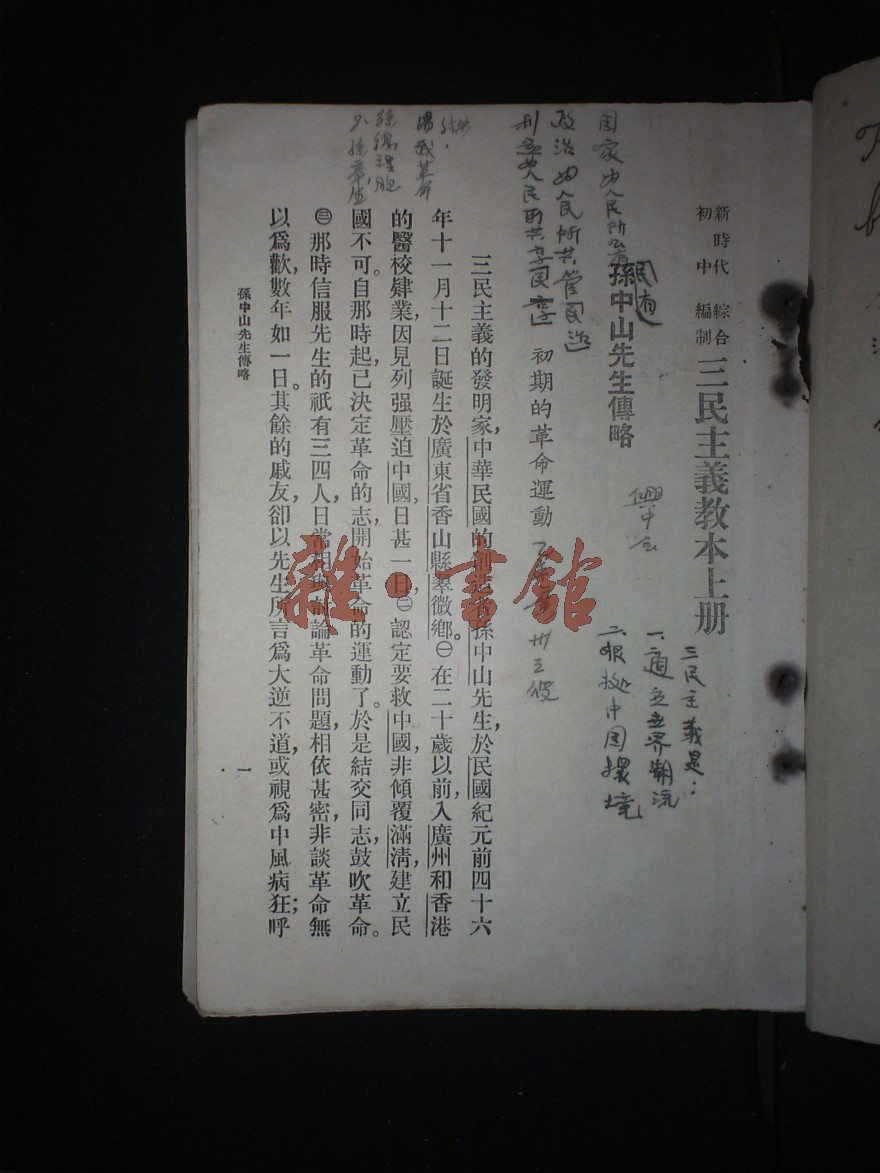 新時代 初中 綜合編制 三民主義教本上册
三民主義是：
一、適應世界潮流
二、根據中国環境
興中会
孫中山先生傳略
民有
国家为人民所公有
政治为人民所共管民治
利益为人民所共享民享
初期的革命運動
三民主義的發明家，中華民國的創造者孫中山先生，於民國紀元前四十六
年十一月十二日誕生於廣東省香山縣翠微鄉。㊀在二十歲以前，入廣州和香港
的醫校肄業，因見列强壓迫中國，日甚一日，㊁認定要救中國，非傾覆滿淸，建立民
國不可。自那時起，已決定革命的志，開始革命的運動了。於是結交同志，鼓吹革命。
㊂那時信服先生的祇有三四人，日常相與討論革命問題，相依甚密，非談革命無
以爲歡，數年如一日。其餘的戚友，卻以先生所言爲大逆不道，或視爲中風病狂；呼
湯武革命
孫中山先生傳略
一
雜·書館